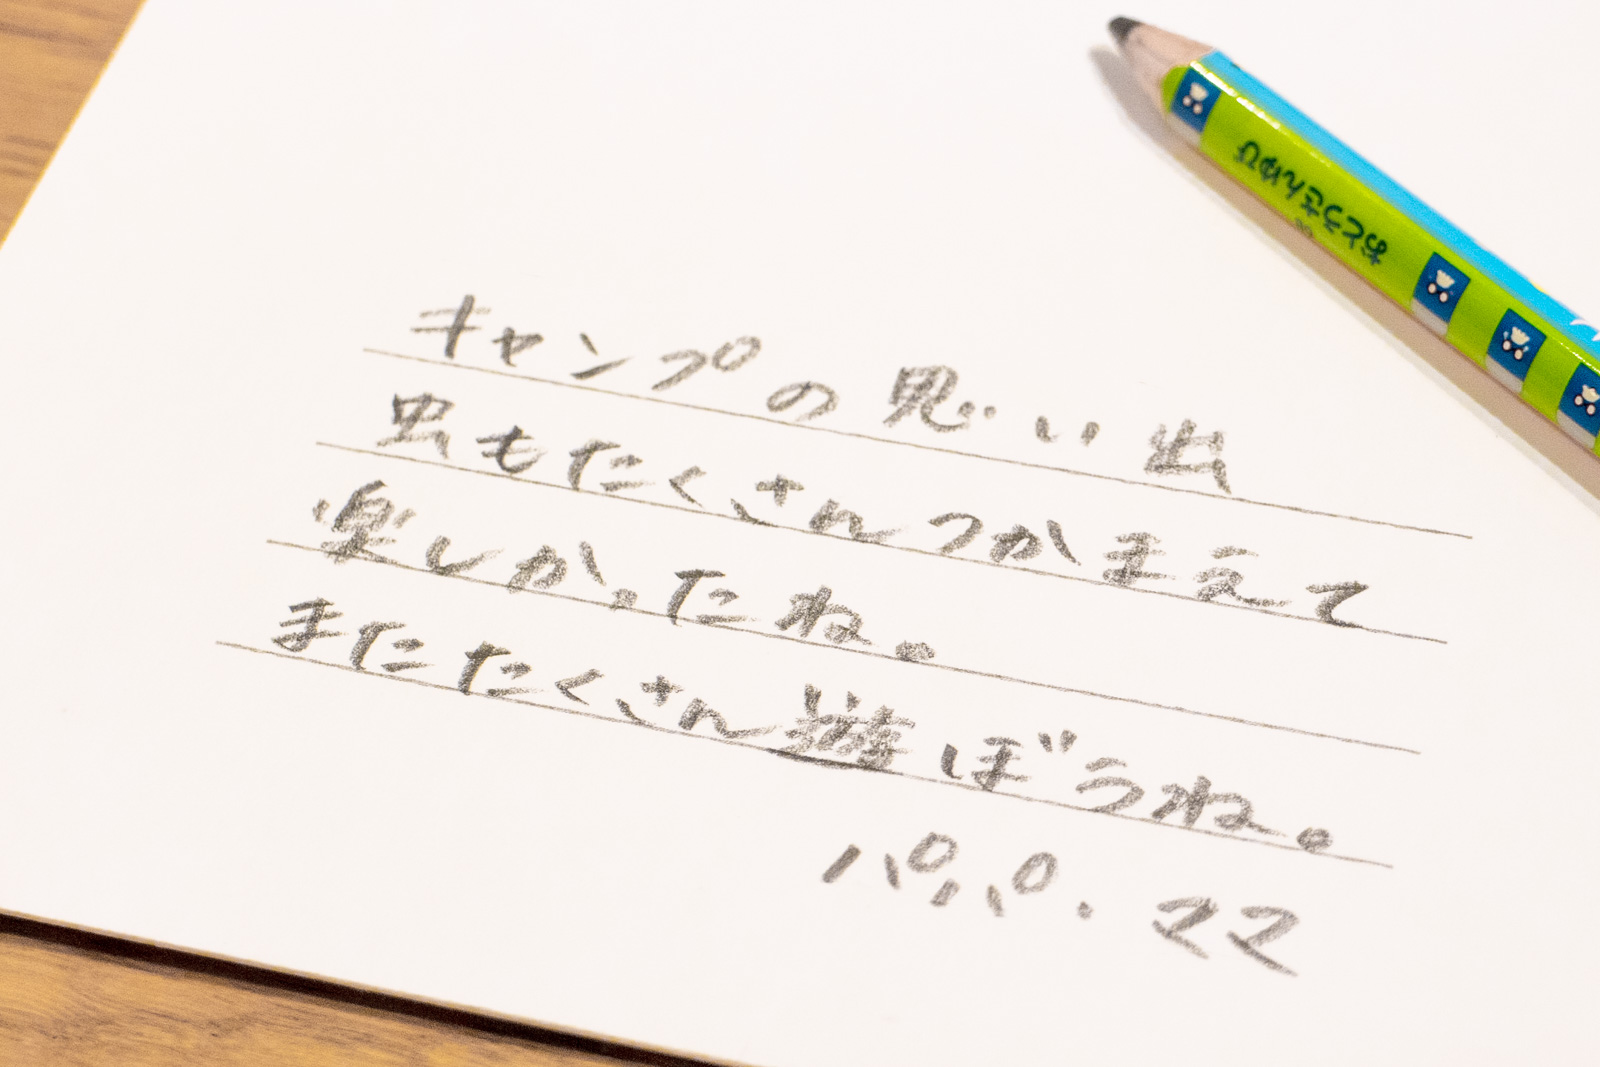 キャンプの思い出
虫もたくさんつかまえて
楽しかったね。
またたくさん遊ぼうね。
パパ・ママ